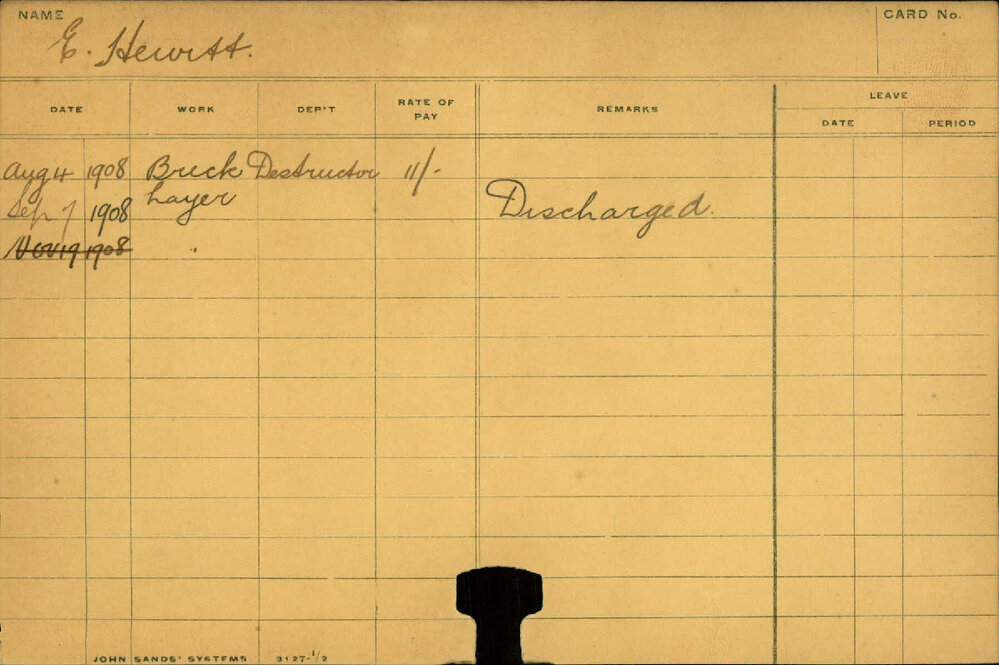 NAME
E. Hewitt.
CARD No.
DATE WORK DEP'T RATE OF PAY REMARKS LEAVE
DATE PERIOD
Aug 4 1908 Brick Destructor 11/-
Sep 7 1908 Layer Discharged.
Nov 19 1908
JOHN SANDS' SYSTEMS 3127-1/2